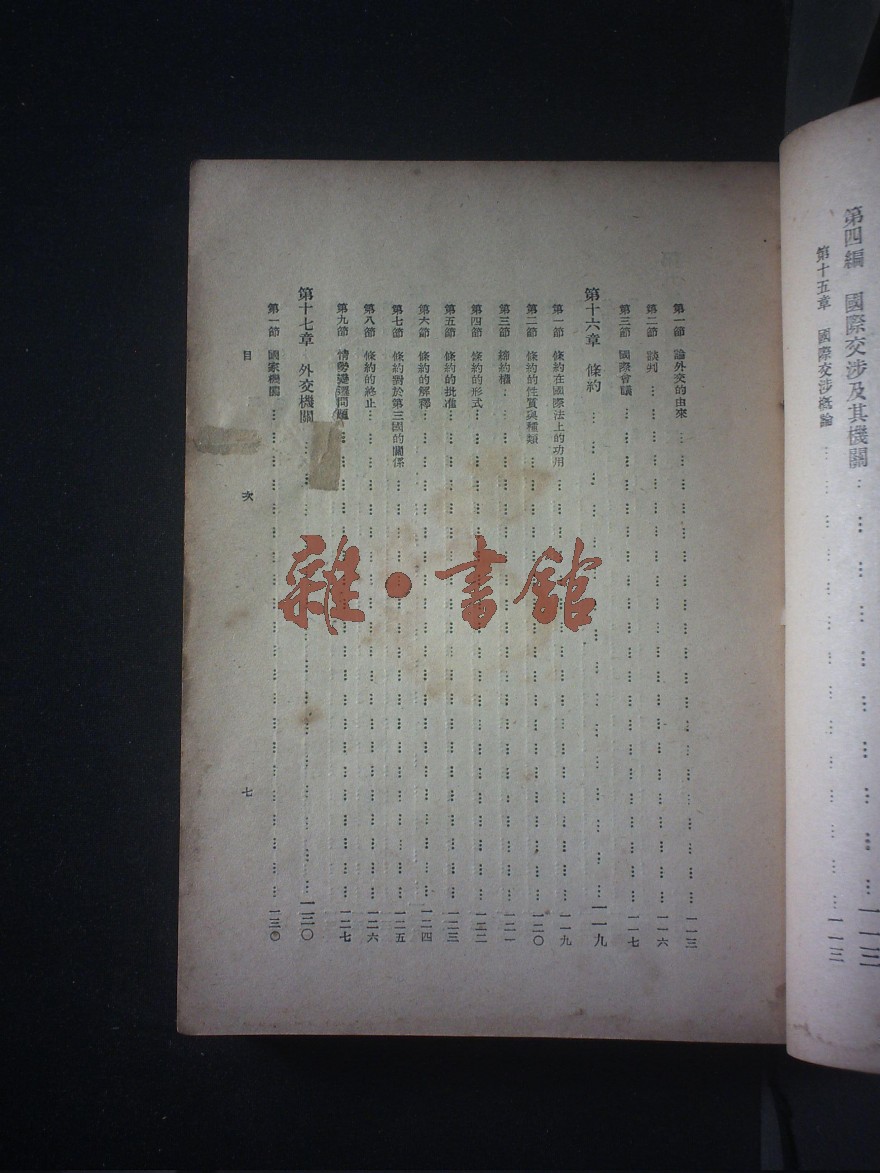 第四編 國際交涉及其機關 … … … … … … … … … … … 一一三
第十五章 國際交涉概論 … … … … … … … … … … … 一一三
第一節 論外交的由來 … … … … … … … … … … … 一一三
第二節 談判 … … … … … … … … … … … 一一六
第三節 國際會議 … … … … … … … … … … … 一一七
第十六章 條約 … … … … … … … … … … … 一一九
第一節 條約在國際法上的功用 … … … … … … … … … … … 一一九
第二節 條約的性質與種類 … … … … … … … … … … … 一二〇
第三節 締約權 … … … … … … … … … … … 一二一
第四節 條約的形式 … … … … … … … … … … … 一二二
第五節 條約的批准 … … … … … … … … … … … 一二三
第六節 條約的解釋 … … … … … … … … … … … 一二四
第七節 條約對於第三國的關係 … … … … … … … … … … … 一二五
第八節 條約的終止 … … … … … … … … … … … 一二六
第九節 情勢變遷問題 … … … … … … … … … … … 一二七
第十七章 外交機關 … … … … … … … … … … … 一三〇
第一節 國家機關 … … … … … … … … … … … 一三〇
目 次 七
雜·書館